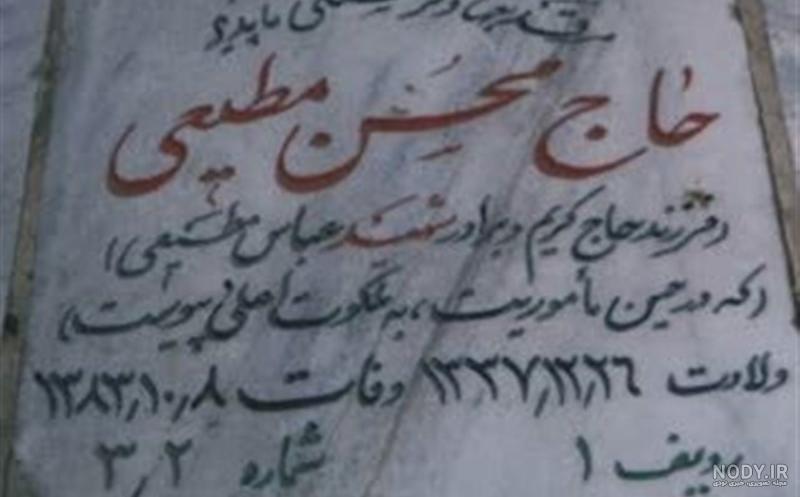 ما پدید
حاج محسن مطیعی
(فرزند حاج کریم و برادر شهید عباس مطیعی)
(که در حین مأموریت، به ملکوت اعلی پیوست)
ولادت ۱۳۳۷٫۱۲٫۲۶ وفات ۱۳۸۳٫۱۰٫۸
ردیف ۱ شماره ۳٫۲
NODY.IR
مجله تصویری، خبری نودی